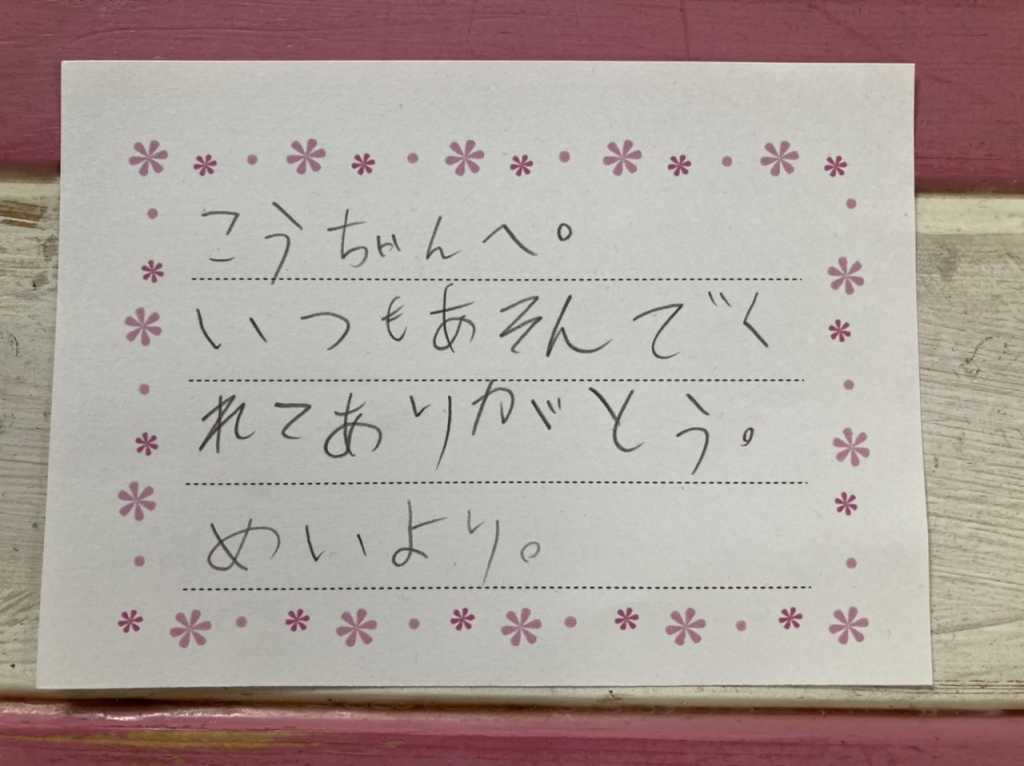 こうちゃんへ。
いつもあそんでく
れてありがとう。
めいより。